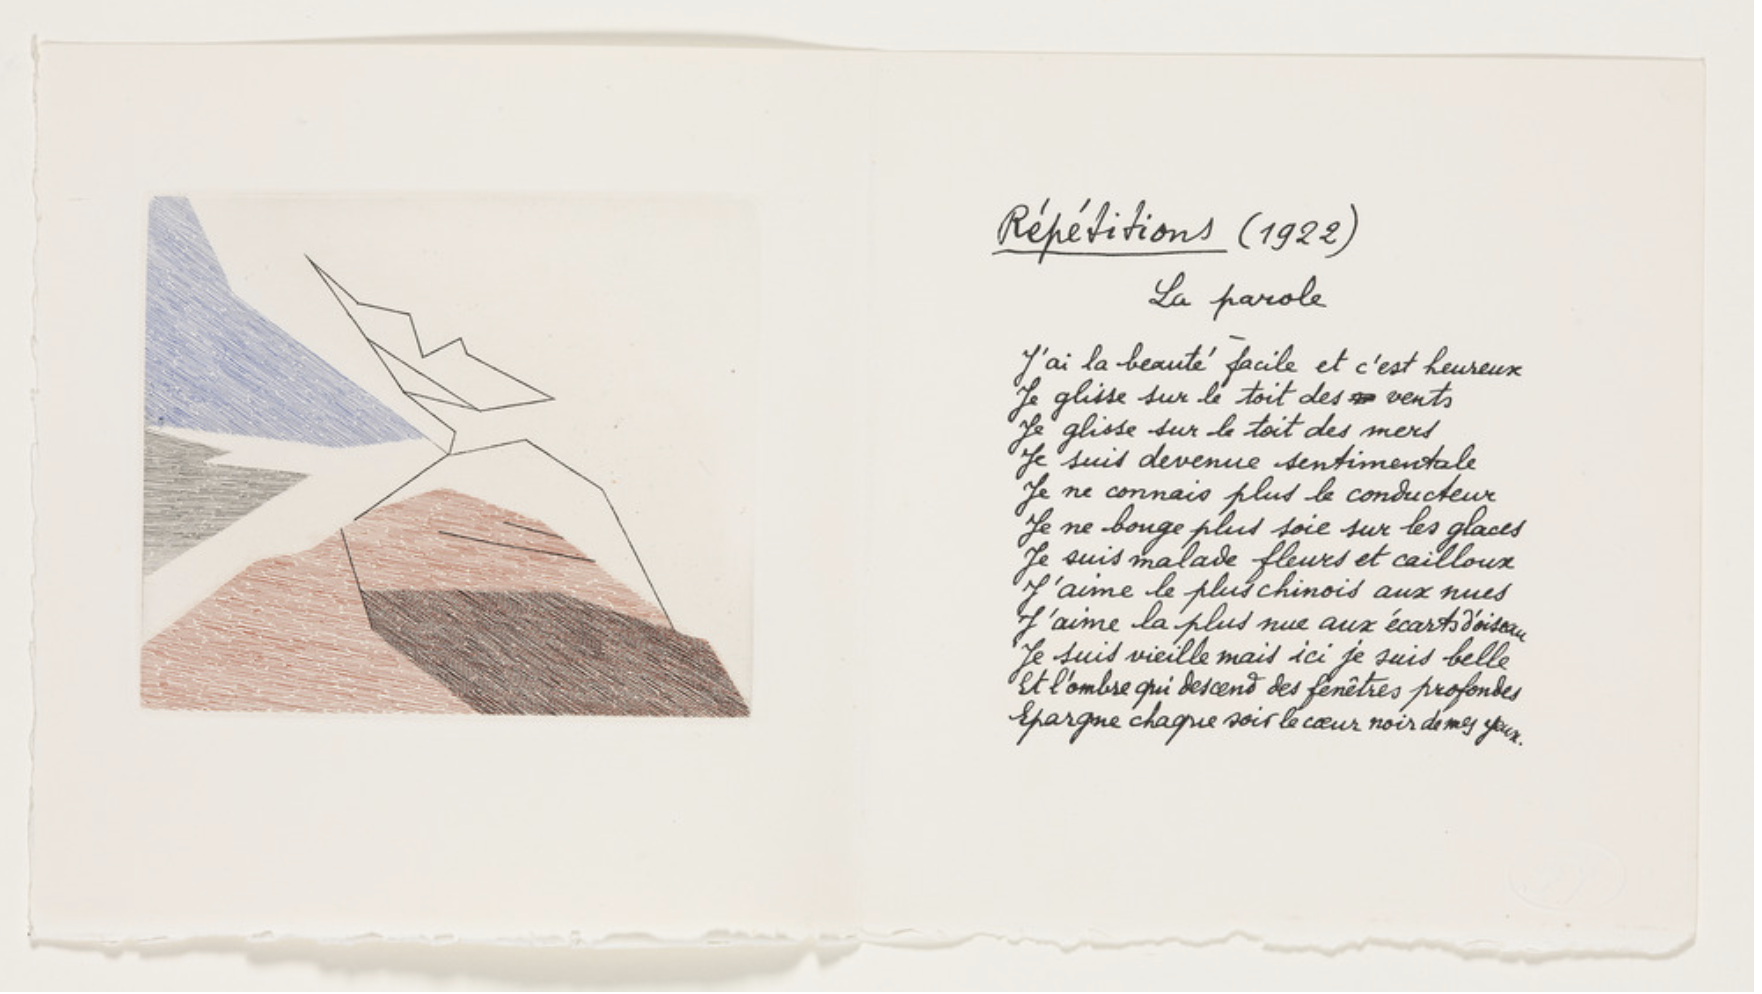 Répétitions (1922)
La parole
J'ai la beauté facile et c'est heureux
Je glisse sur le toit des vents
Je glisse sur le toit des mers
Je suis devenue sentimentale
Je ne connais plus le conducteur
Je ne bouge plus soie sur les glaces
Je suis malade fleurs et cailloux
J'aime le plus chinois aux nues
J'aime la plus nue aux écarts d'oiseau
Je suis vieille mais ici je suis belle
Et l'ombre qui descend des fenêtres profondes
Epargne chaque soir le cœur noir de mes yeux.